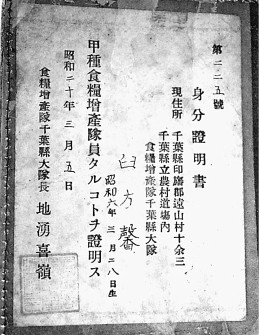 第二二五號
身分證明書
現住所 千葉縣印旛郡遠山村十余三
千葉縣立農村道場內
食糧增產隊千葉縣大隊
臼方
昭和六年三月二八日生
甲種食糧增產隊員タルコトヲ證明ス
昭和二十年三月五日
食糧增產隊千葉縣大隊長 地湧喜嶺